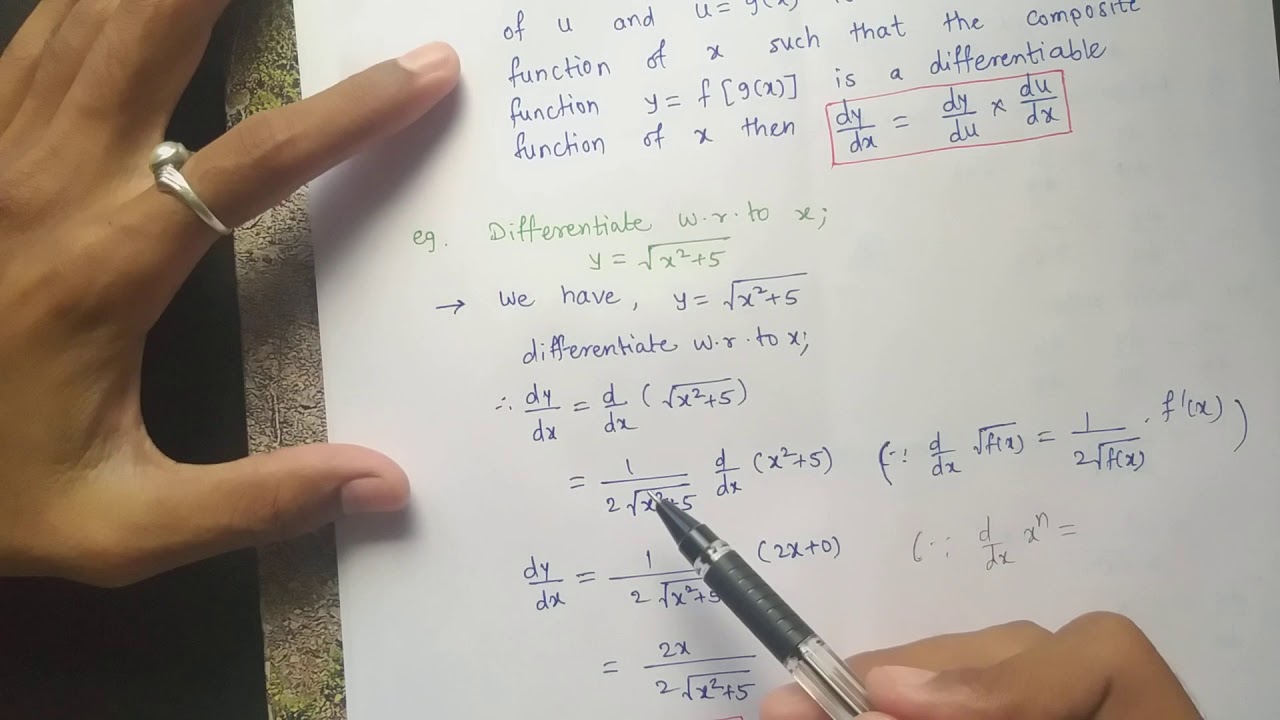 of u and u = g(x)
function of x such that the composite
function y = f[g(x)] is a differentiable
function of x then dy/dx = dy/du × du/dx
eg. Differentiate w.r.to x;
y = √(x²+5)
→ We have, y = √(x²+5)
differentiate w.r.to x;
∴ dy/dx = d/dx (√(x²+5))
= 1/(2√(x²+5)) d/dx (x²+5) (∵ d/dx √f(x) = 1/(2√f(x)) . f'(x))
dy/dx = 1/(2√(x²+5)) (2x+0) (∵ d/dx xⁿ =
= 2x/(2√(x²+5))